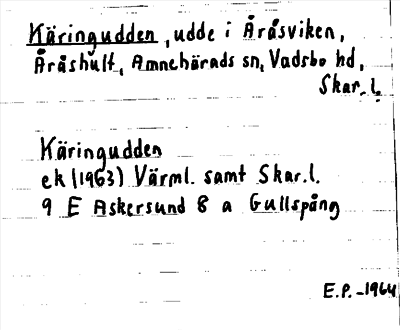 Käringudden, udde i Åråsviken,
Åråshult, Amnehärads sn, Vadsbo hd,
Skar. l.
Käringudden
ek (1963) Värml. samt Skar. l.
9 E Askersund 8 a Gullspång
E.P. -1964